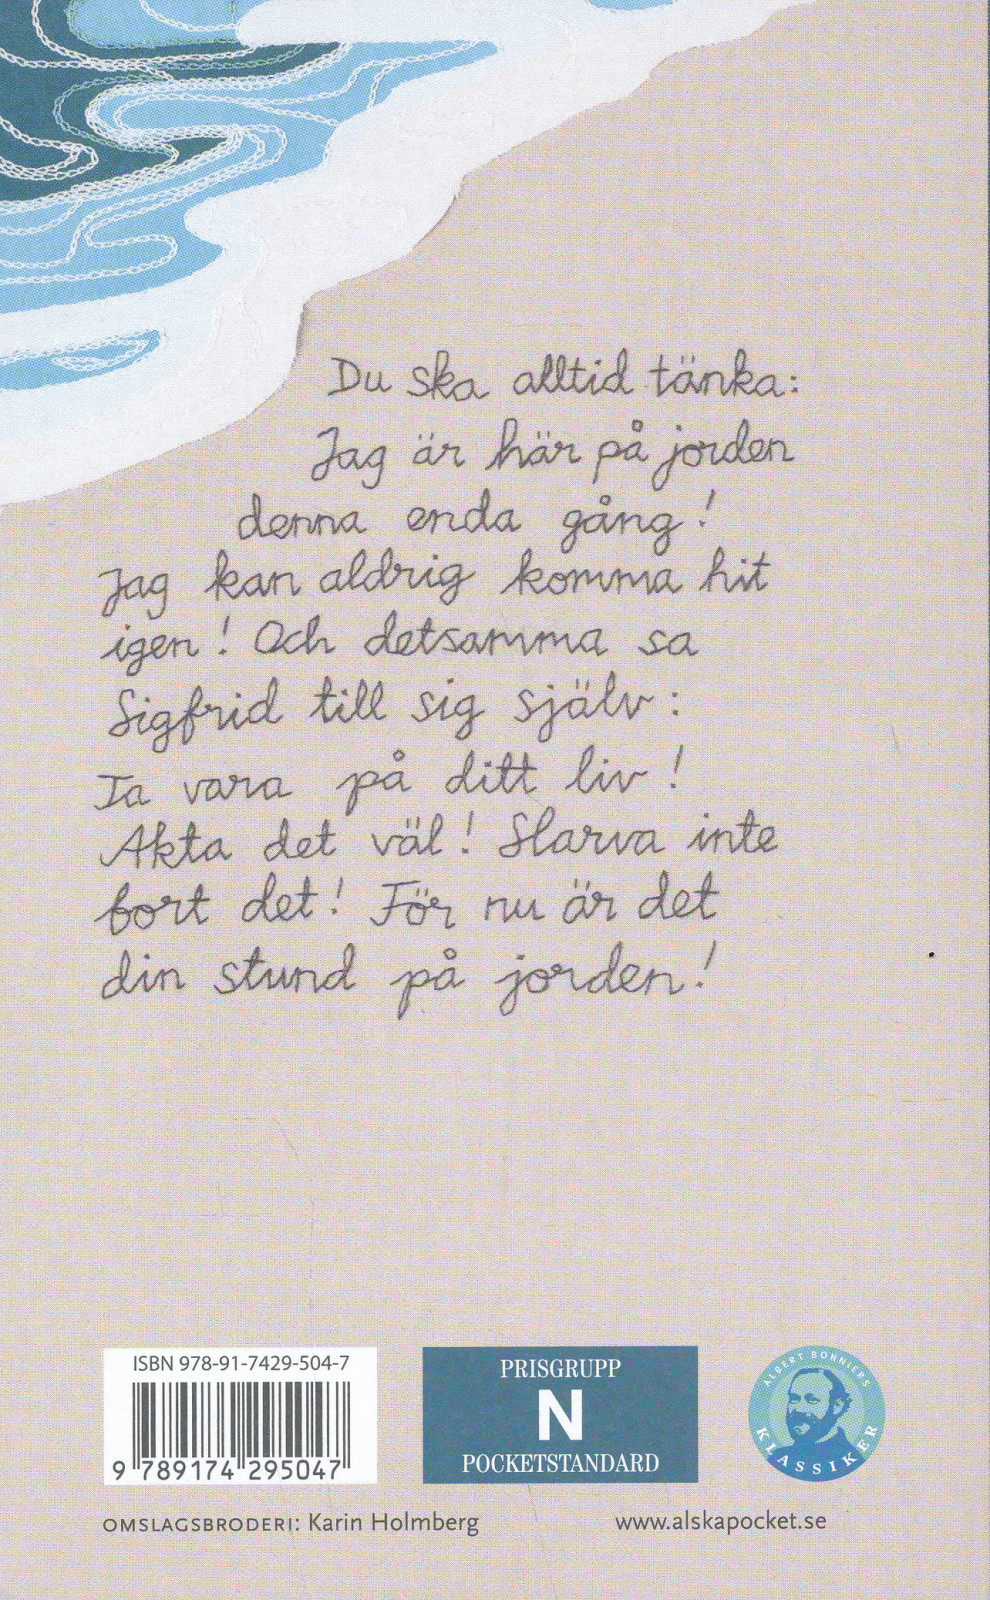 Du ska alltid tänka:
Jag är här på jorden
denna enda gång!
Jag kan aldrig komma hit
igen! Och detsamma sa
Sigfrid till sig själv:
Ta vara på ditt liv!
Akta det väl! Slarva inte
bort det! För nu är det
din stund på jorden!
ISBN 978-91-7429-504-7
9 789174 295047
PRISGRUPP
N
POCKETSTANDARD
ALBERT BONNIERS
KLASSIKER
OMSLAGSBRODERI: Karin Holmberg
www.alskapocket.se